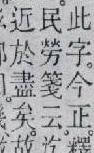 此字。今正。釋
民勞箋云。
近於盡矣。故